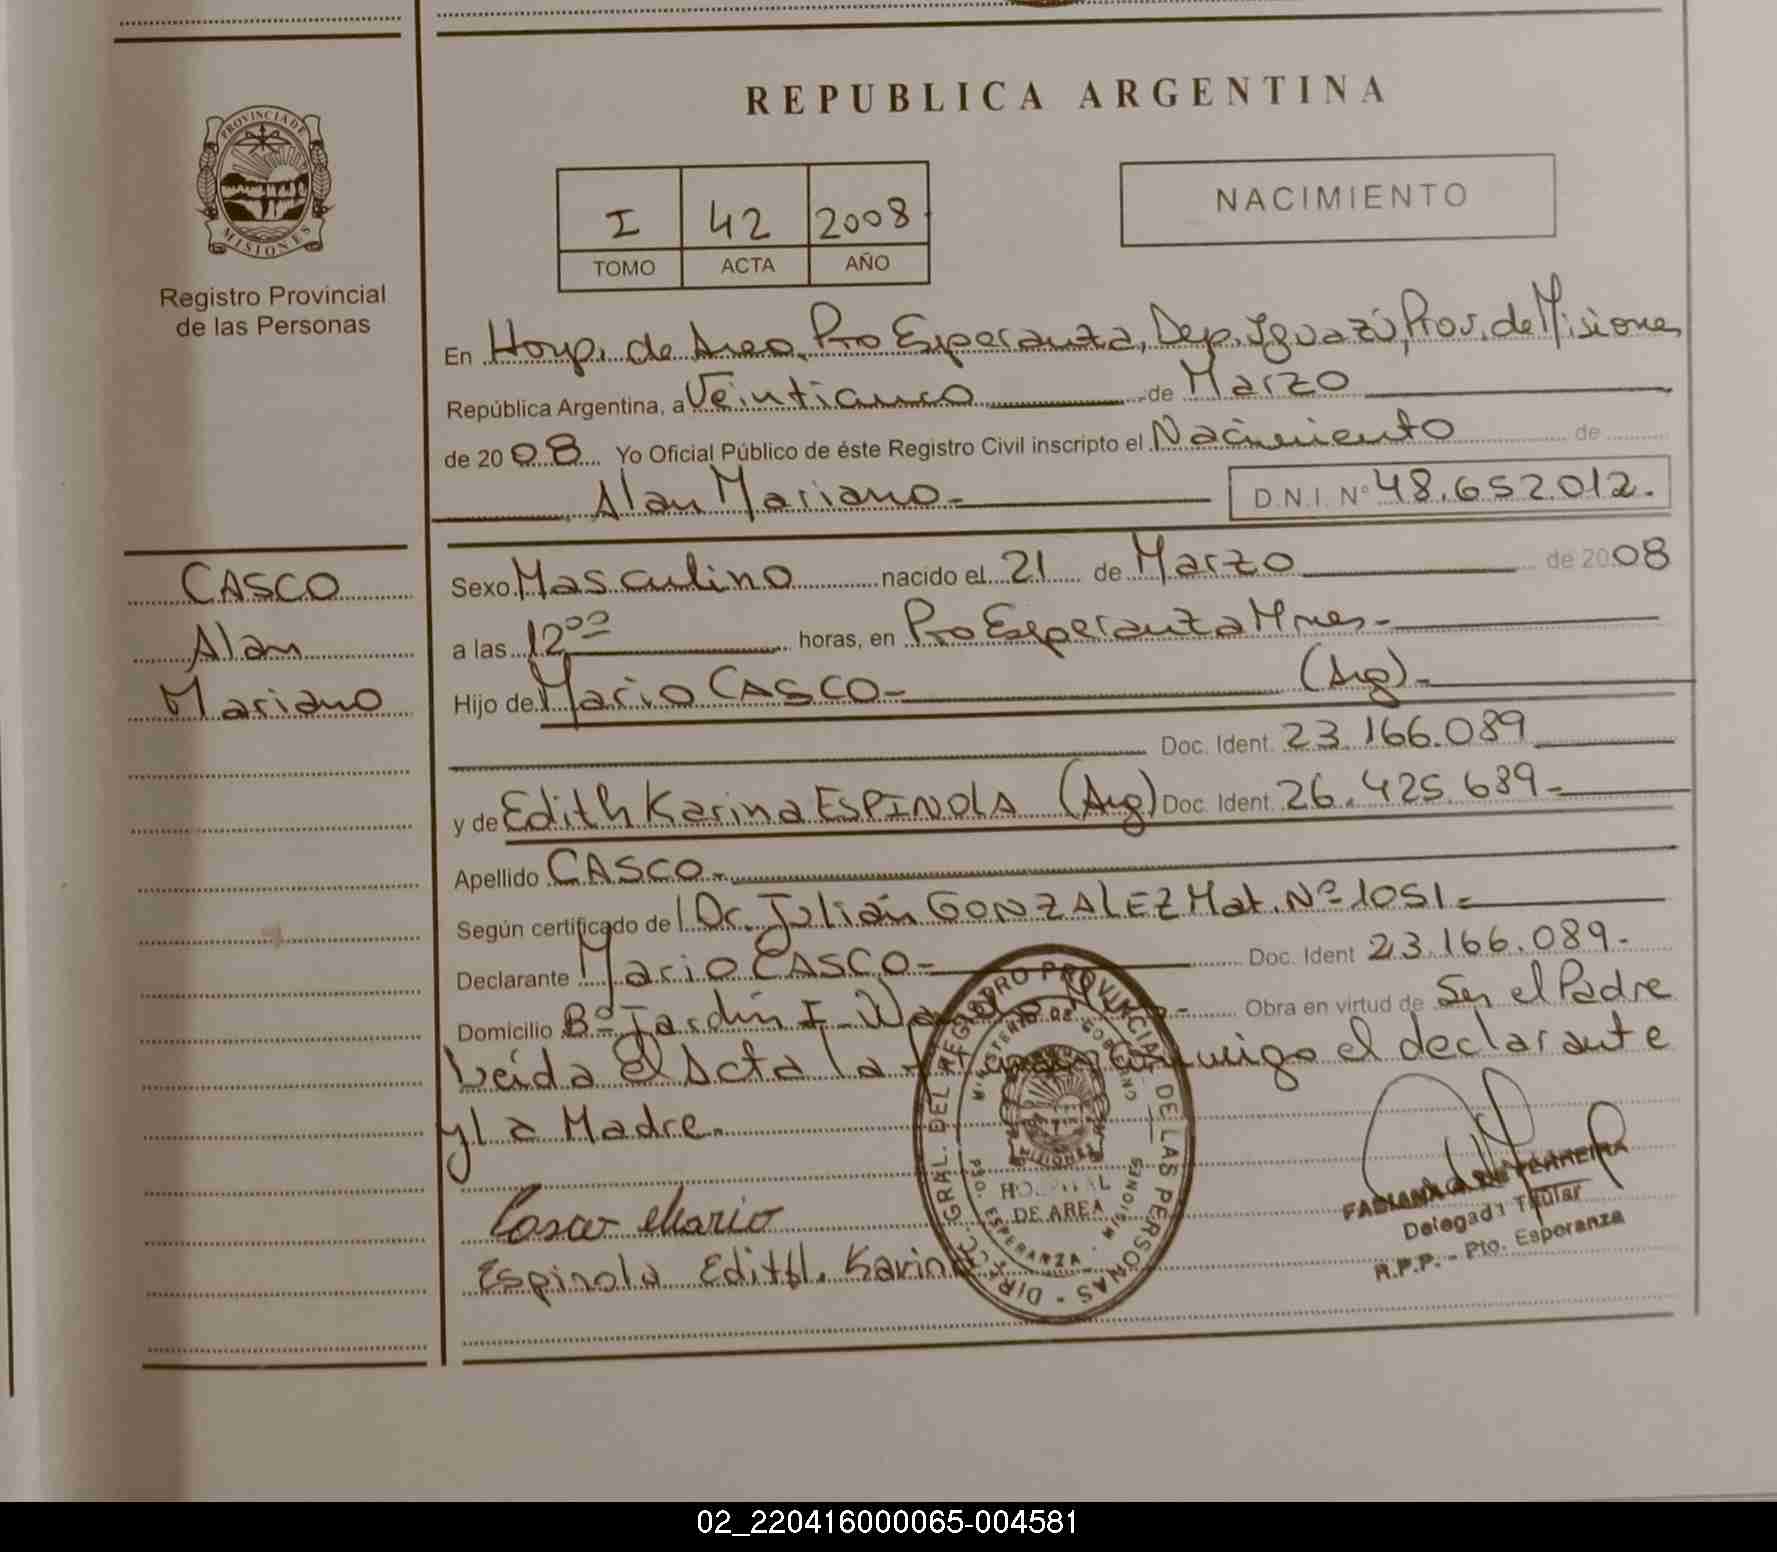 REPUBLICA ARGENTINA
PROVINCIA DE
MISIONES
Registro Provincial
de las Personas
I 42 2008
TOMO ACTA AÑO
NACIMIENTO
En Hosp. de Area Pto Esperanza, Dep. Iguazú, Prov. de Misiones
República Argentina, a Veinticinco de Marzo
de 2008 Yo Oficial Público de éste Registro Civil inscripto el Nacimiento de
Alan Mariano- D.N.I. Nº 48.652.012.
CASCO
Alan
Mariano
Sexo Masculino nacido el 21 de Marzo de 2008
a las 12ºº horas, en Pto Esperanza Mnes-
Hijo de Mario CASCO- (Arg)-
Doc. Ident. 23.166.089
y de Edith Karina ESPINOLA (Arg) Doc. Ident. 26.425.689-
Apellido CASCO-
Según certificado de Dr. Julián GONZALEZ Mat. Nº 1051-
Declarante Mario CASCO- Doc. Ident 23.166.089-
Domicilio Bº Jardín I- Obra en virtud de Ser el Padre
Leída el Acta la conmigo el declarante
y la Madre.
Casco Mario
Espinola Edith Karina
DIRECC. GRAL. DEL REGISTRO PROVINCIAL DE LAS PERSONAS
MINISTERIO DE GOBIERNO
MISIONES
HOSPITAL
DE AREA
PTO. ESPERANZA - MISIONES
FERREIRA
Delegada Titular
R.P.P. - Pto. Esperanza
02_220416000065-004581